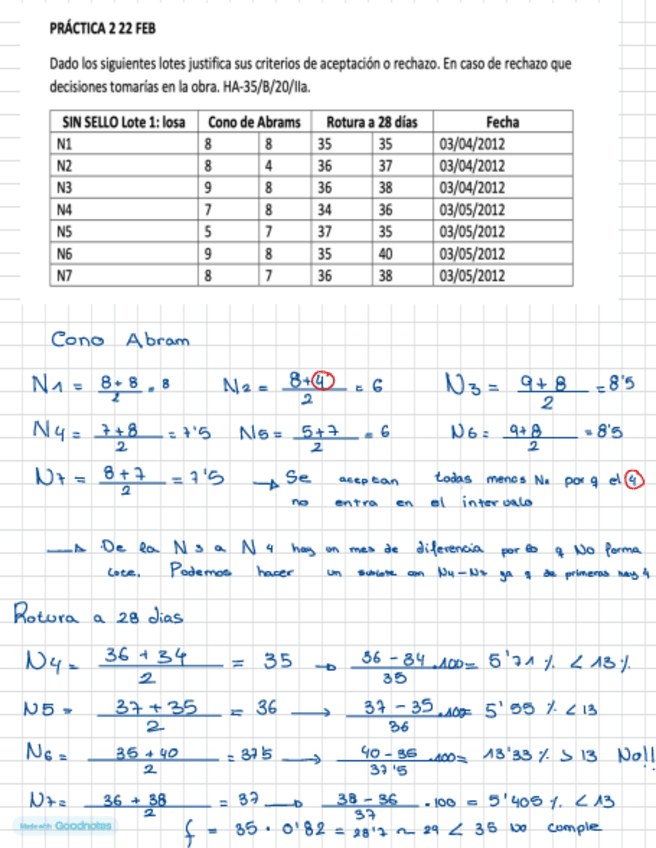 PRÁCTICA 2 22 FEB
Dado los siguientes lotes justifica sus criterios de aceptación o rechazo. En caso de rechazo que
decisiones tomarías en la obra. HA-35/B/20/IIa.
SIN SELLO Lote 1: losa Cono de Abrams Rotura a 28 días Fecha
N1 8 8 35 35 03/04/2012
N2 8 4 36 37 03/04/2012
N3 9 8 36 38 03/04/2012
N4 7 8 34 36 03/05/2012
N5 5 7 37 35 03/05/2012
N6 9 8 35 40 03/05/2012
N7 8 7 36 38 03/05/2012
Cono Abram
N1 = 8+8/2 = 8 N2 = 8+4/2 = 6 N3 = 9+8/2 = 8'5
N4 = 7+8/2 = 7'5 N5 = 5+7/2 = 6 N6 = 9+8/2 = 8'5
N7 = 8+7/2 = 7'5 → Se aceptan todas menos N2 por q el 4
no entra en el intervalo
→ De la N3 a N4 hay un mes de diferencia por lo q No forma
lote. Podemos hacer un sublote con N4-N7 ya q de primeras hay 4
Rotura a 28 dias
N4 = 36+34/2 = 35 → 36-34/35 .100= 5'71 % < 13 %
N5 = 37+35/2 = 36 → 37-35/36 .100= 5'55 % < 13
N6 = 35+40/2 = 37'5 → 40-35/37'5 .100= 13'33 % > 13 No!!
N7 = 36+38/2 = 37 → 38-36/37 .100 = 5'405 % < 13
Made with Goodnotes
f = 35 · 0'82 = 28'7 ~ 29 < 35 No comple